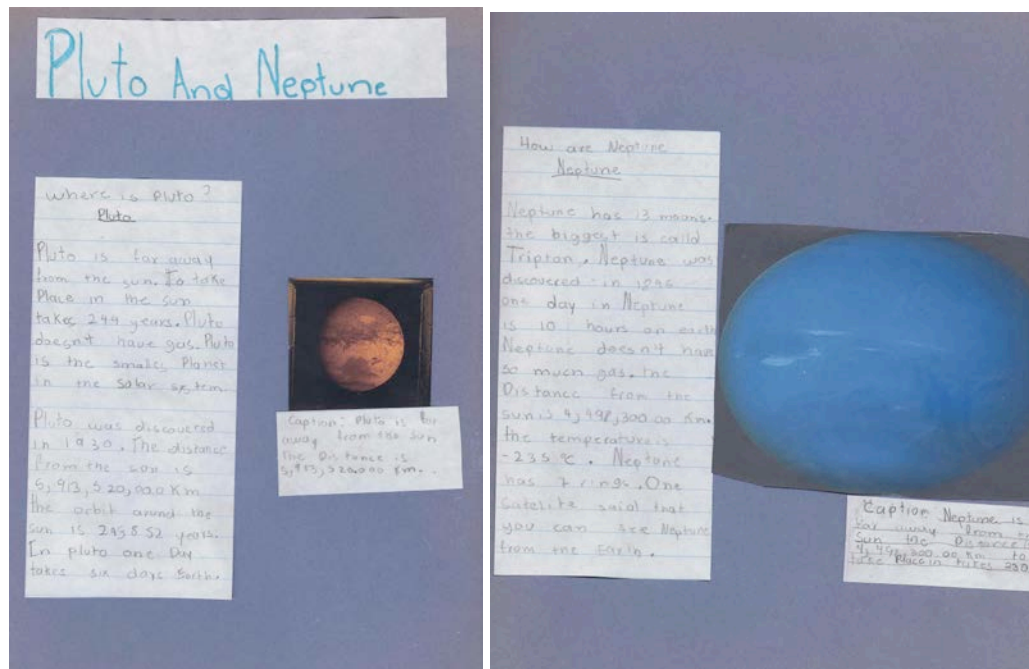 Pluto And Neptune
where is Pluto?
Pluto
Pluto is far away
from the sun. To take
Place in the sun
takes 249 years. Pluto
doesn't have gas. Pluto
is the smalles Planet
in the solar system.
Pluto was discovered
in 1930. The distance
from the sun is
5,913,520,000 Km
the orbit around the
sun is
years.
In pluto one Day
takes six days
Caption: Pluto is far
away from the sun
The Distance is
5,913,520,000 Km.
How are Neptune
Neptune
Neptune has 13 moons.
the biggest is calld
Tripton. Neptune was
discovered in
one day in Neptune
is 10 hours on earth
Neptune doesn't have
so much gas. The
Distance from the
sun is 4,498,300.00 Km.
the temperature is
-235 °C. Neptune
has 7 rings. One
satelite said that
you can see Neptune
from the Earth.
Caption Neptune is
far away from
sun the Distance
4,498,300.00 Km to
take Place in takes